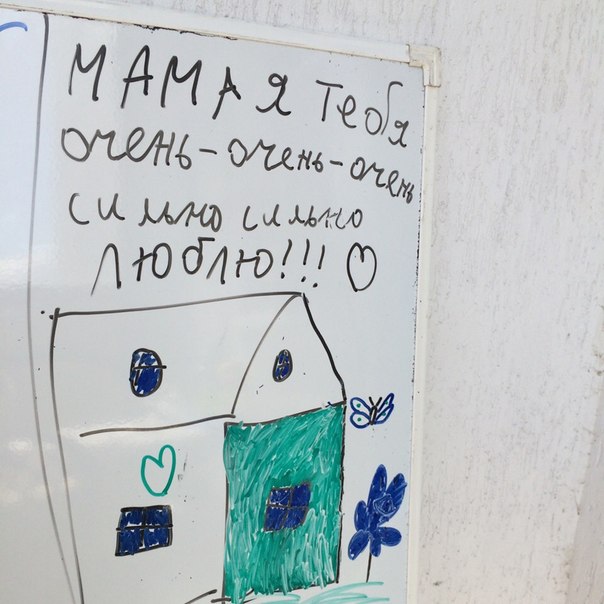 МАМА Я тебя
очень-очень-очень
сильно сильно
люблю!!! ♡